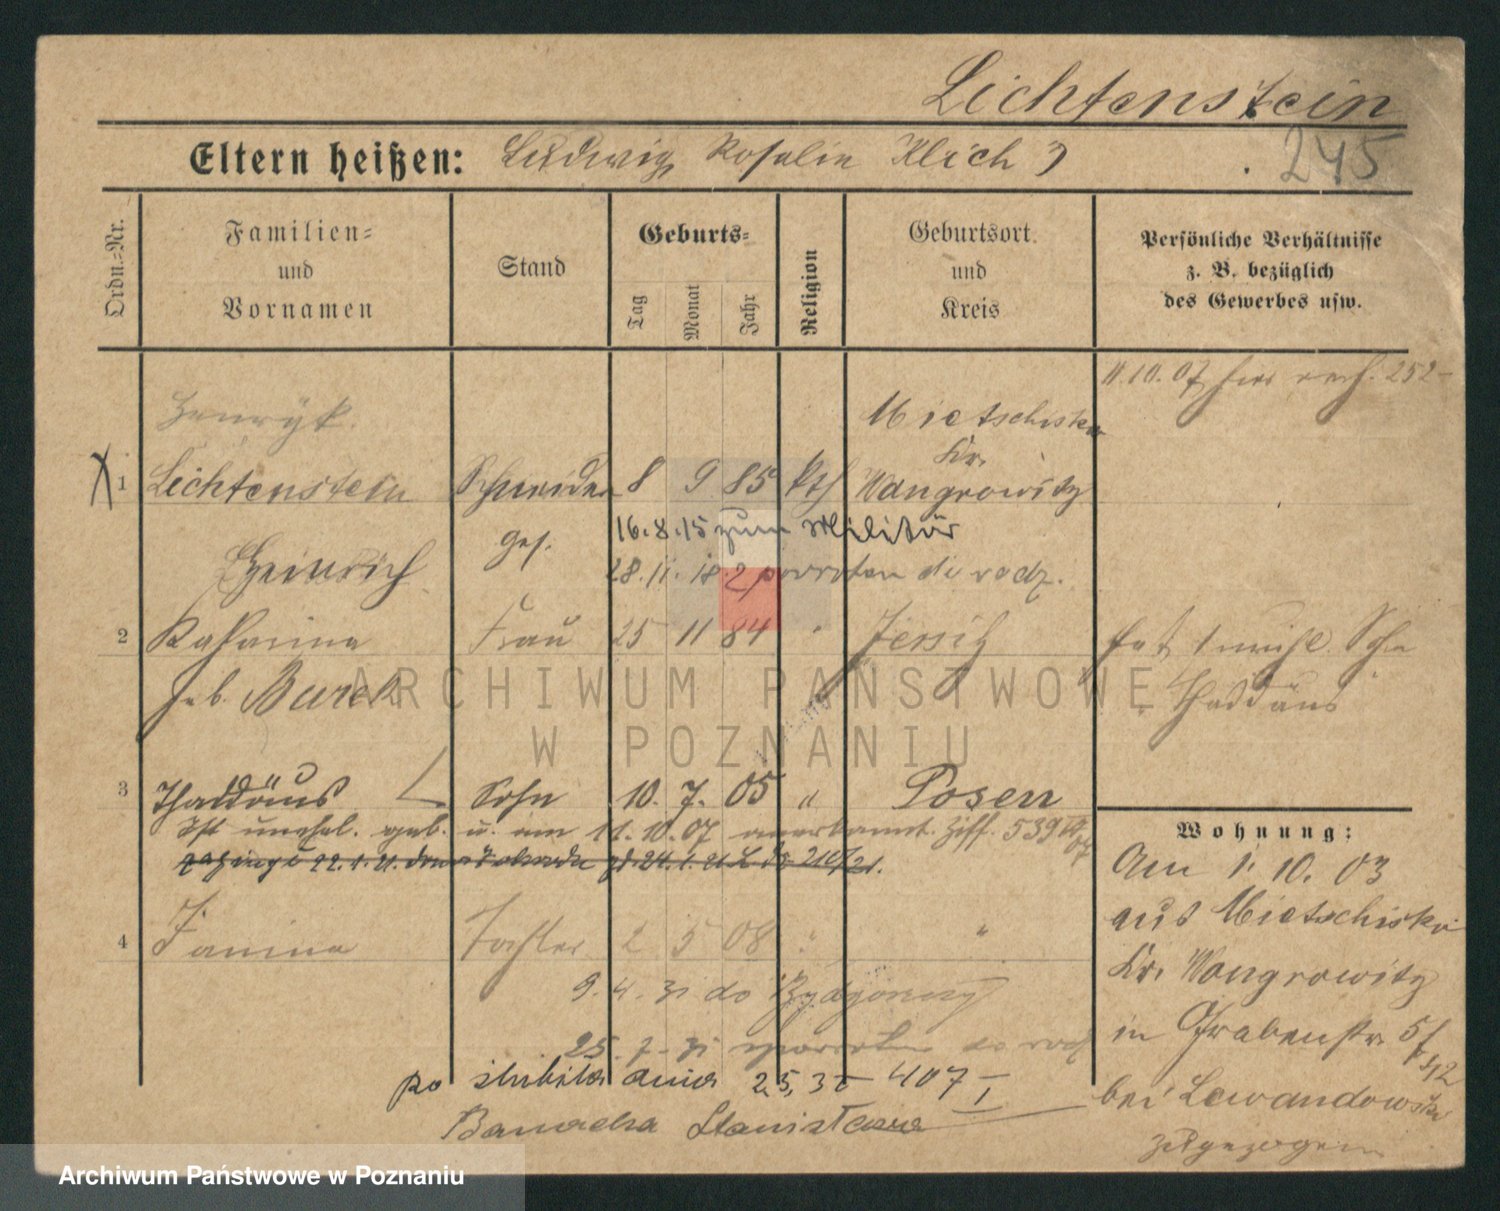 Lichtenstein
245
Eltern heißen: Ludwig, Rosalie Klich
Ordn.-Nr.
Familien-
und
Vornamen
Stand
Geburts-
Tag
Monat
Jahr
Religion
Geburtsort
und
Kreis
Persönliche Verhältnisse
z. B. bezüglich
des Gewerbes usw.
11.10.07 252
Henryk
Mietschisko
Kr.
1 Lichtenstein Schneider 8 9 85 kth Wangrowitz
16.8.15 zum Militär
Heinrich ges.
28.11.18 z powrotem do rodz.
2 Katharina Frau 25 11 84 " Jersitz
hat 1 unehel. Sohn
geb. Burek
Thaddäus
3 Thaddäus Sohn 10. 7. 05 " Posen
Ist unehel. geb. u. am 11.10.07 anerkannt. Ziff. 539
22.1.21. 24.1.21
Wohnung:
Am 1. 10. 03
aus Mietschisko
Kr. Wangrowitz
in Grabenstr. 5
bei Lewandowski
zugezogen
4 Janina Tochter 2 5 08 " "
9.4.31 do Bydgoszczy
25.7.31 powrotem do rodz
po ślubiła dnia 25,3 407
I
Banacka Stanisława
ARCHIWUM PAŃSTWOWE
W POZNANIU
Archiwum Państwowe w Poznaniu